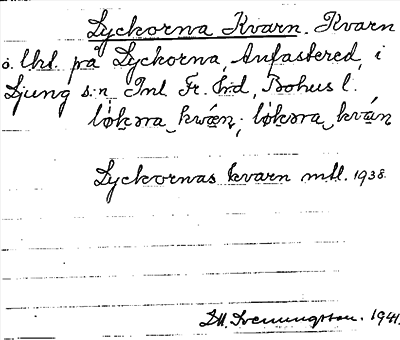 Lyckorna Kvarn. Kvarn
o. lht. på Lyckorna, Anfastered, i
Ljung s:n, Inl. Fr. hd, Bohus l.
løkɔna kwæn; løkɔna kván
Lyckornas kvarn mtl. 1938.
M. Svenningsson. 1941.